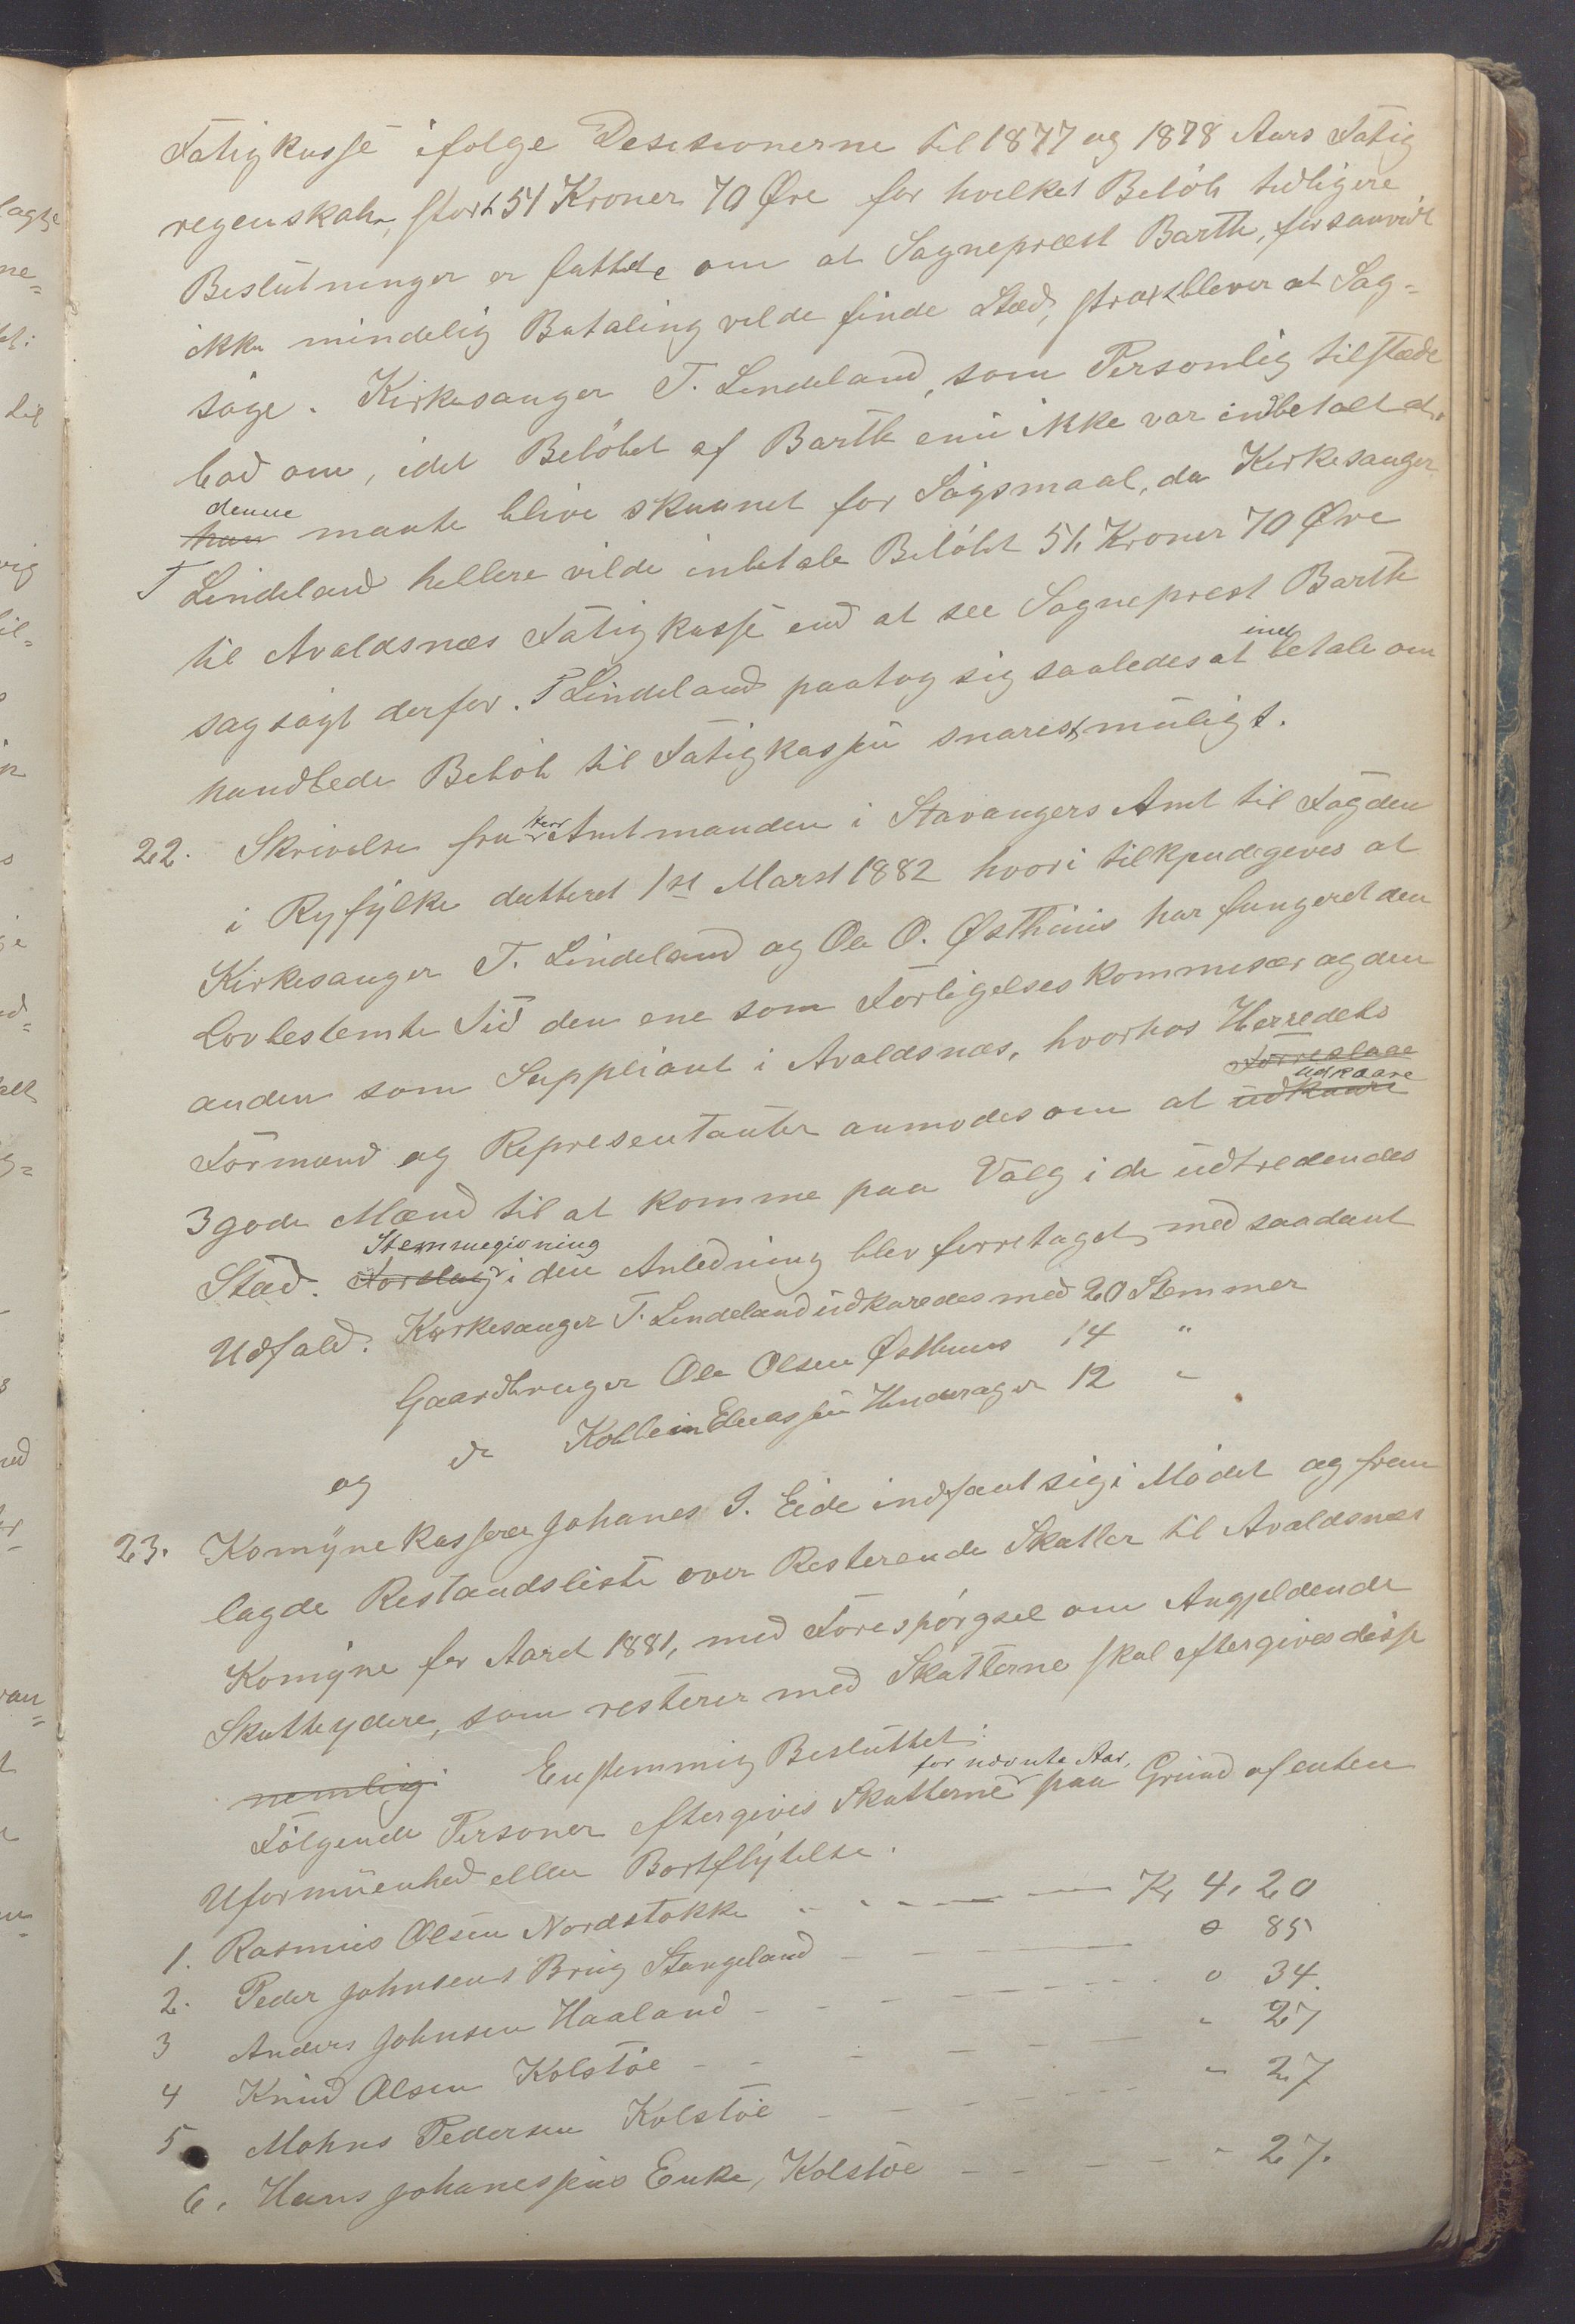 Fatigkasse ifölge Desisionerne til 1877 og 1878 Aars Fatig
regenskab, stort 51 Kroner 70 Øre for hvilket Belöb tidligere
Beslutninger er fattede om at Sagneprest Barth, forsaavidt
ikke mindelig Betaling vilde finde Sted, strax blever at Sag-
söge. Kirkesanger T. Lindeland, som Personlig tilstæde
bad om, idet Belöbet af Barth enu ikke var indbetalt at
denne
han maate blive skaanet for Sögsmaal, da Kirkesanger
T Lindeland hellere vilde inbetale Belöbet 51, Kroner 70 Øre
til Avaldsnæs Fatigkasse end at see Sagneprest Barth
sagsögt derfor. T Lindeland paatog sig saaledes at indbetale om
handlede Belöb til Fatigkassen snarest muligt.
22. Skrivelse fra Herr Amtmanden i Stavangers Amt til Fogden
i Ryfylke datteret 1st Marst 1882 hvori tilkjendegeves at
Kirkesanger T. Lindeland og Ole O. Østhuus har fungeret den
Lovbestemte Tid den ene som Forligelseskommesær og den
anden som Suppliant i Avaldsnæs, hvorhos Herredets
Forreslaae
Formænd og Representanter anmodes om at udkaare udkaare
3 gode Mænd til at komme paa Valg i de udtredendes
Stemmegivning
Stæd. Forslag i den Anledning blev forretaget, med saadant
Udfald. Kirkesanger T. Lindeland udkaredes med 20 Stemmer
Gaardbruger Ole Olsen Østhuus 14 "
og do Kolbein Eliassen Henderager 12 "
23. Komynekasserer Johanes J. Eide indfant sig i Mödet og frem
lagde Restandsliste over Resterende Skatter til Avaldsnæs
Komyne for Aaret 1881, med Forespörgsel om Angjeldende
Skatteydere, som resterer med Skatterne skal eftergives disse
nemlig: Enstemmig Besluttet:
for nævnte Aar,
Fölgende Personer eftergives Skatterne paa Grund af enten
Uformuenhed eller Bortflytelse.
1. Rasmus Olsen Nordstokke Kr 4,20
2. Peder Johnsens Brug Stangeland 0 85
3 Anders Johnsen Haaland 0 34.
4 Knud Olsen Kolstöe " 27
5 Mohns Pedersen Kolstöe " 27
6. Hans Johanessens Enke, Kolstöe " 27.